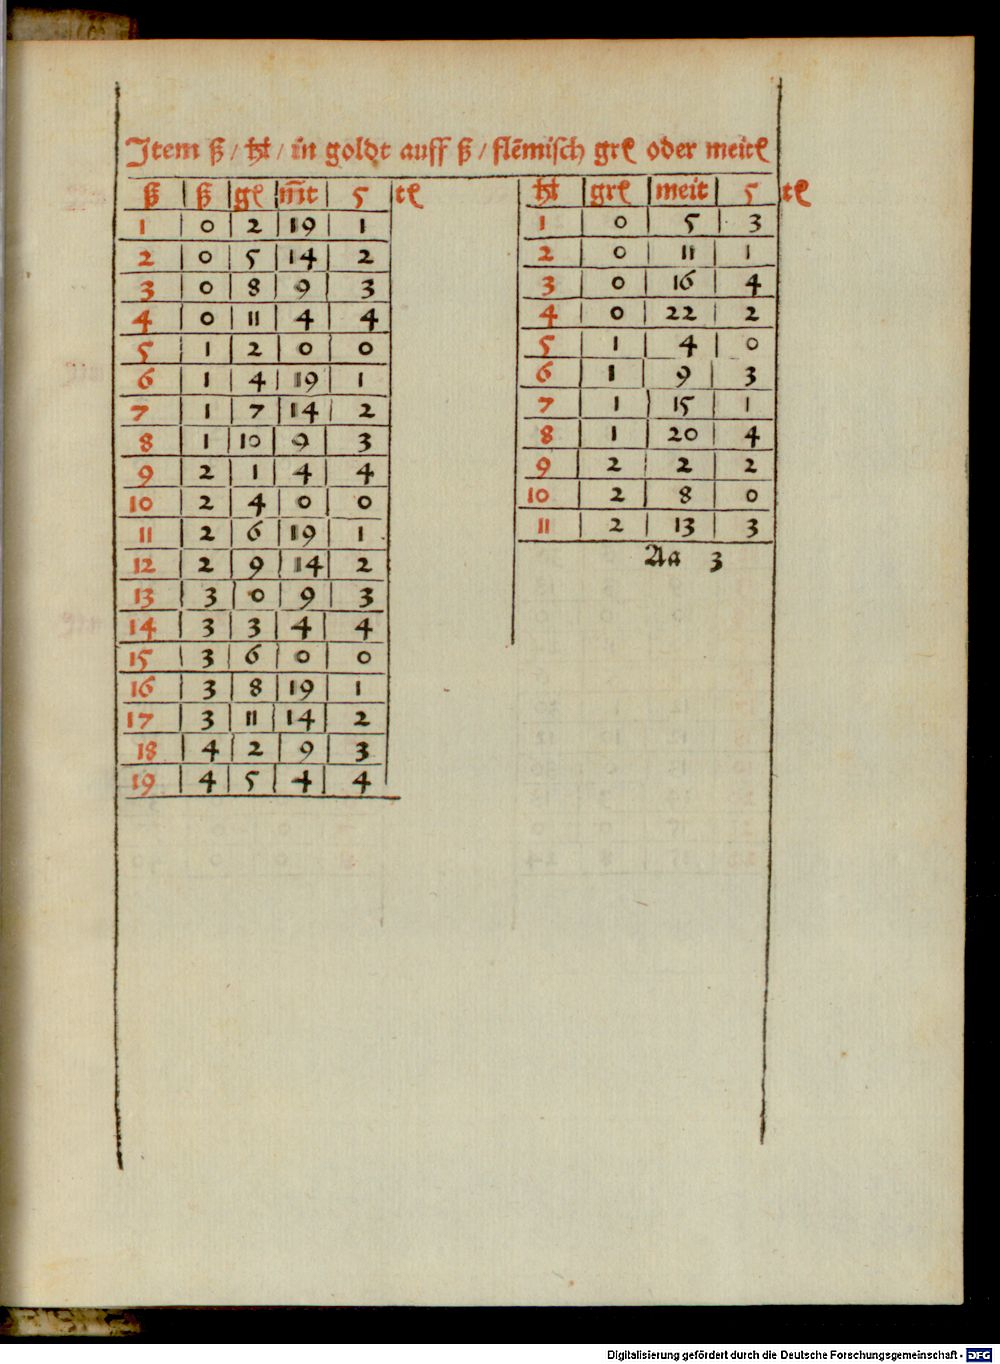 Item ß / hł / in goldt auff ß / flēmisch grꝭ oder meitꝭ
ß ß gꝭ m̄t 5 tꝭ
1 0 2 19 1
2 0 5 14 2
3 0 8 9 3
4 0 11 4 4
5 1 2 0 0
6 1 4 19 1
7 1 7 14 2
8 1 10 9 3
9 2 1 4 4
10 2 4 0 0
11 2 6 19 1
12 2 9 14 2
13 3 0 9 3
14 3 3 4 4
15 3 6 0 0
16 3 8 19 1
17 3 11 14 2
18 4 2 9 3
19 4 5 4 4
hł grꝭ meit 5 tꝭ
1 0 5 3
2 0 11 1
3 0 16 4
4 0 22 2
5 1 4 0
6 1 9 3
7 1 15 1
8 1 20 4
9 2 2 2
10 2 8 0
11 2 13 3
Aa 3
Digitalisierung gefördert durch die Deutsche Forschungsgemeinschaft - DFG